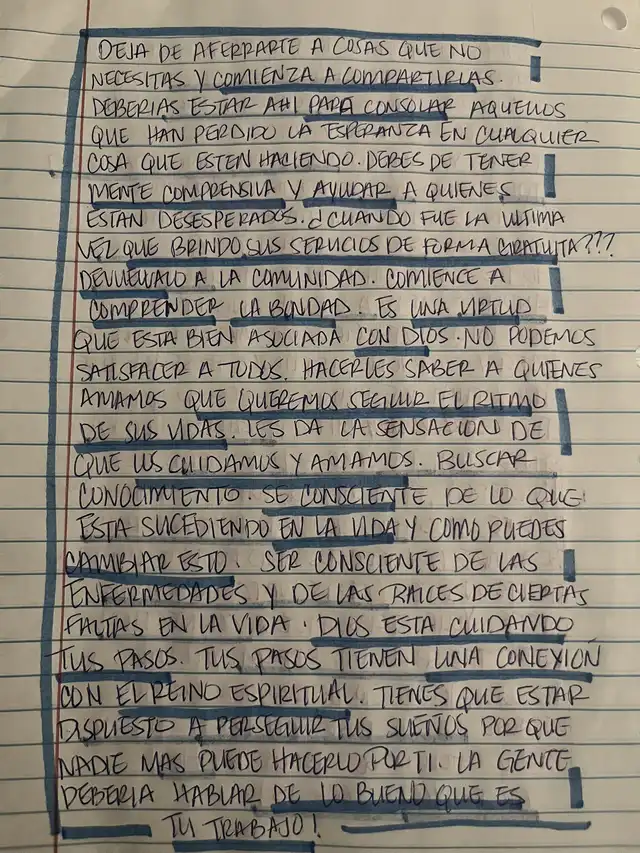 DEJA DE AFERRARTE A COSAS QUE NO
NECESITAS Y COMIENZA A COMPARTIRLAS.
DEBERIAS ESTAR AHI PARA CONSOLAR AQUELLOS
QUE HAN PERDIDO LA ESPERANZA EN CUALQUIER
COSA QUE ESTEN HACIENDO. DEBES DE TENER
MENTE COMPRENSIVA Y AYUDAR A QUIENES
ESTAN DESESPERADOS. ¿CUANDO FUE LA ULTIMA
VEZ QUE BRINDO SUS SERVICIOS DE FORMA GRATUITA???
DEVUELVALO A LA COMUNIDAD. COMIENCE A
COMPRENDER LA BONDAD. ES UNA VIRTUD
QUE ESTA BIEN ASOCIADA CON DIOS. NO PODEMOS
SATISFACER A TODOS. HACERLES SABER A QUIENES
AMAMOS QUE QUEREMOS SEGUIR EL RITMO
DE SUS VIDAS LES DA LA SENSACION DE
QUE LOS CUIDAMOS Y AMAMOS. BUSCAR
CONOCIMIENTO. SE CONSCIENTE DE LO QUE
ESTA SUCEDIENDO EN LA VIDA Y COMO PUEDES
CAMBIAR ESTO. SER CONSCIENTE DE LAS
ENFERMEDADES Y DE LAS RAICES DE CIERTAS
FALTAS EN LA VIDA. DIOS ESTA CUIDANDO
TUS PASOS. TUS PASOS TIENEN UNA CONEXION
CON EL REINO ESPIRITUAL. TIENES QUE ESTAR
DISPUESTO A PERSEGUIR TUS SUEÑOS POR QUE
NADIE MAS PUEDE HACERLO POR TI. LA GENTE
DEBERIA HABLAR DE LO BUENO QUE ES
TU TRABAJO!